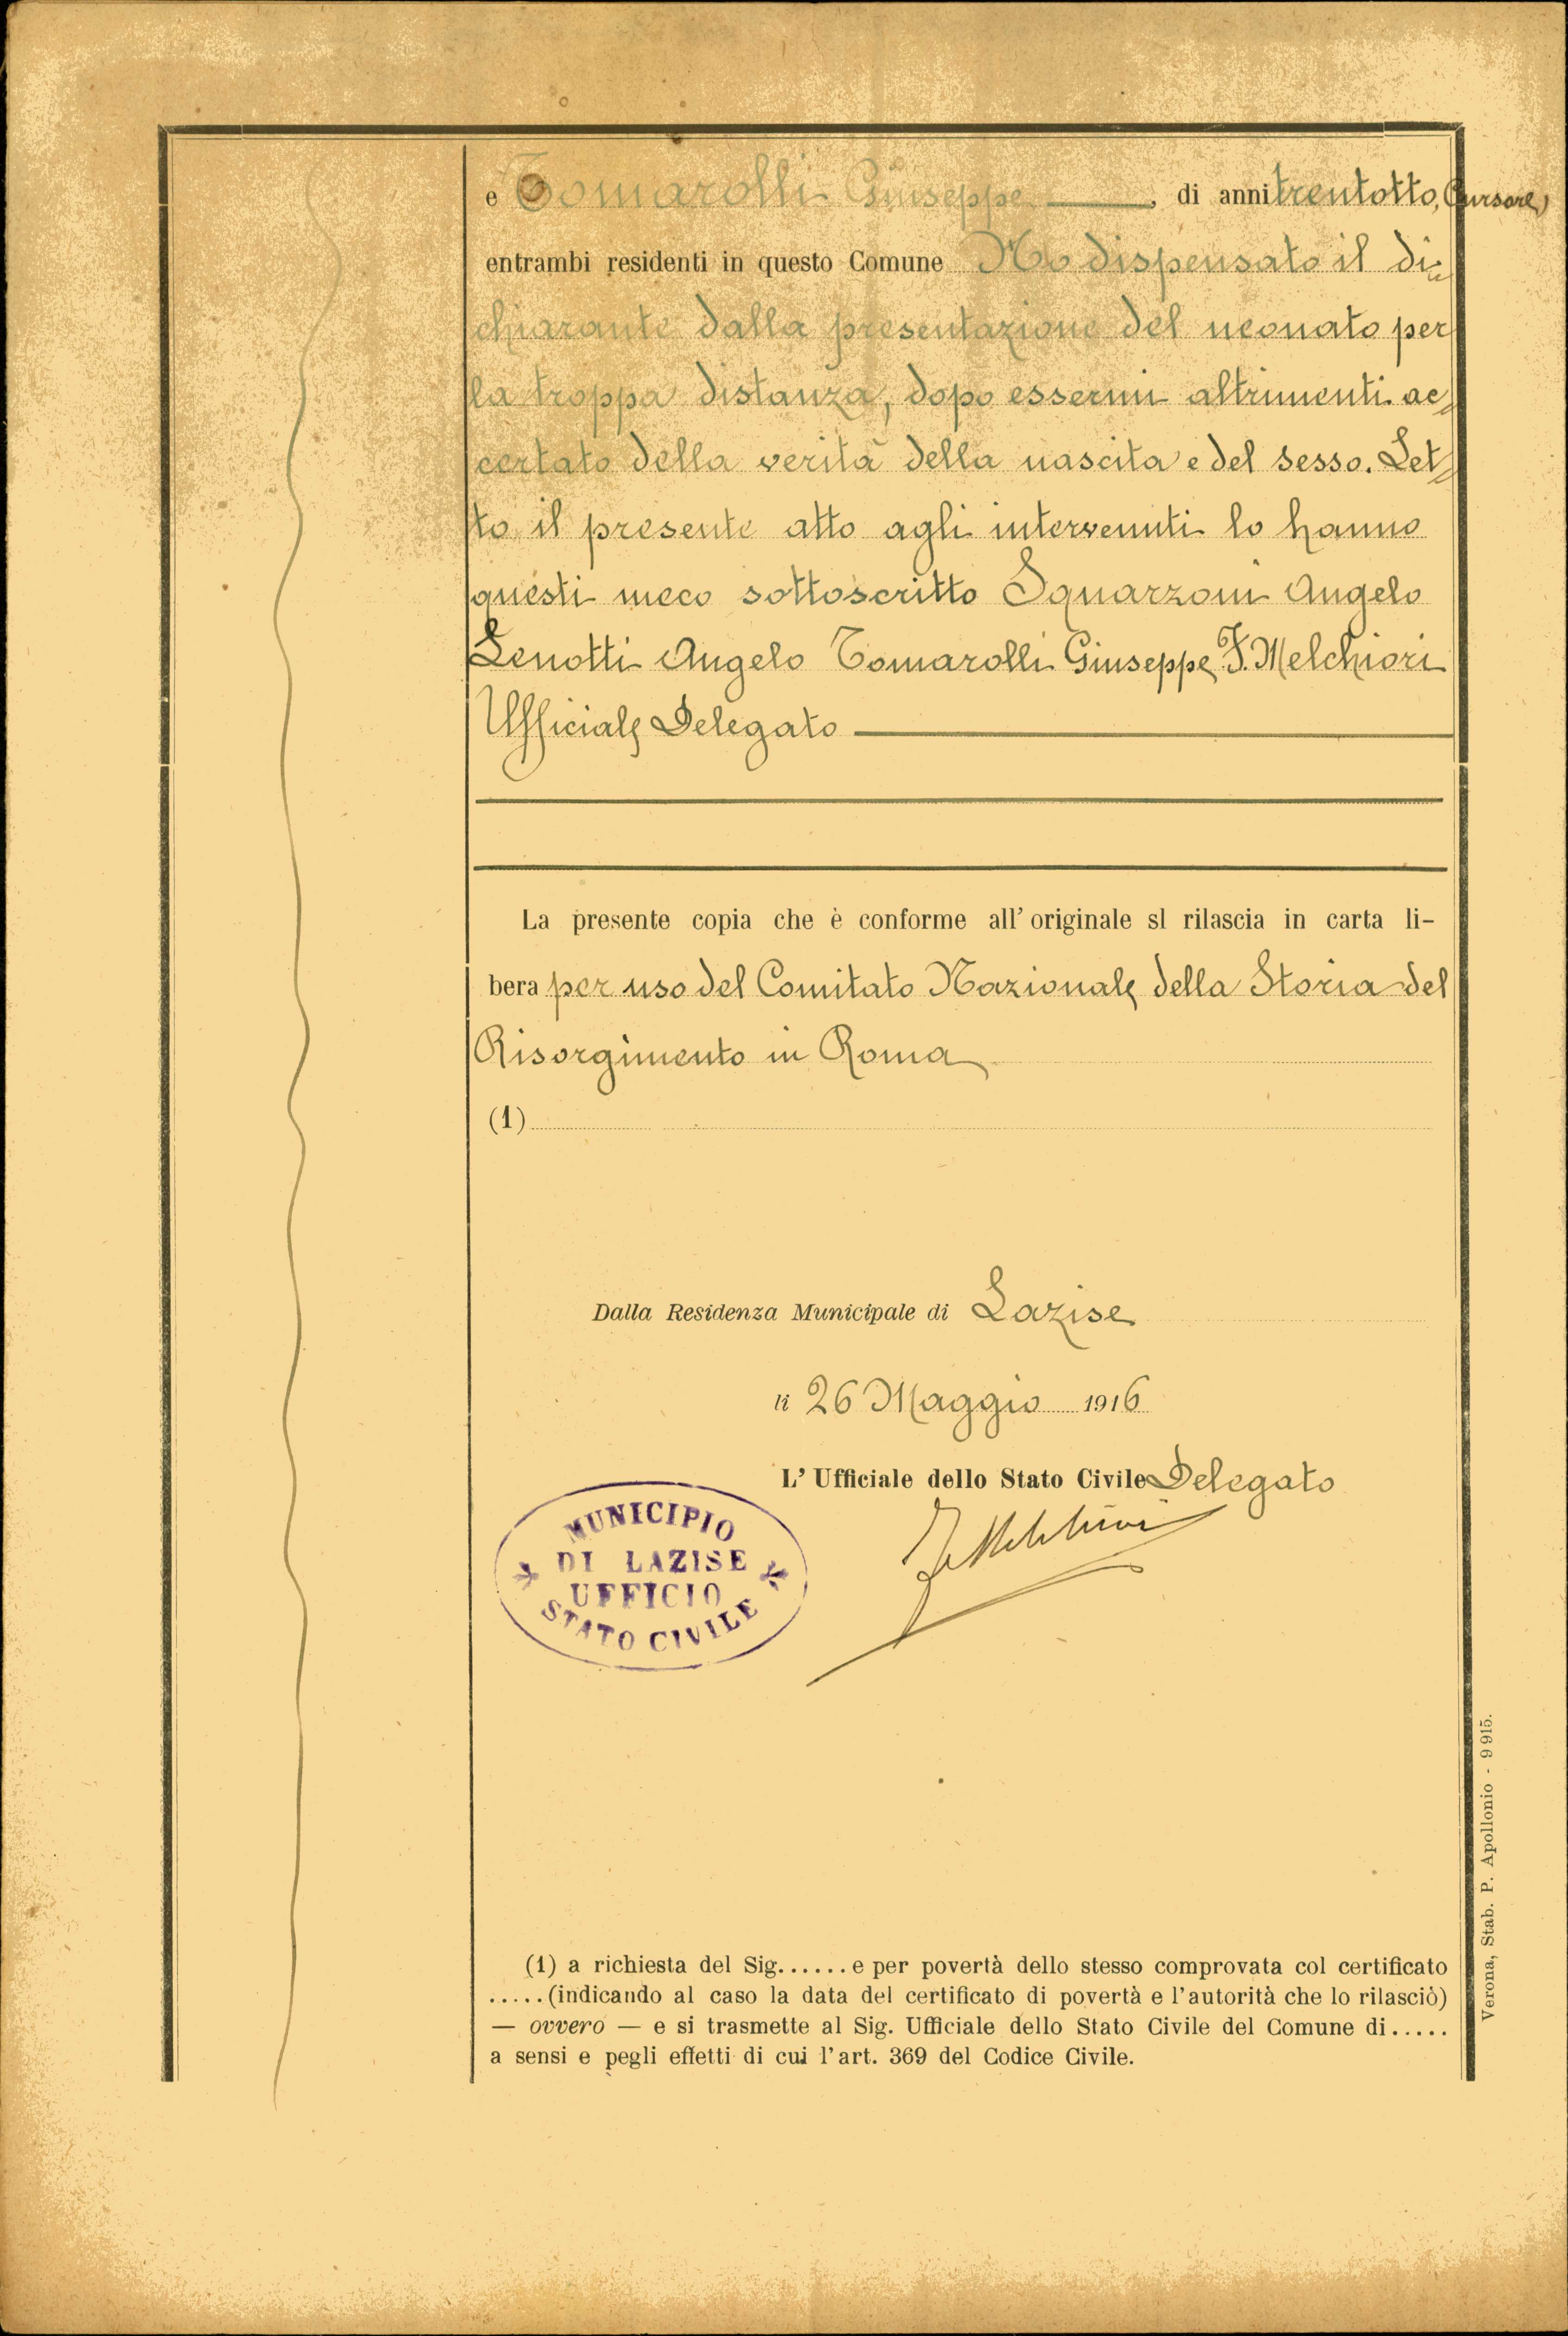 e Tomarolli Giuseppe, di anni trentotto, Cursore,
entrambi residenti in questo Comune Ho dispensato il di=
chiarante dalla presentazione del neonato per
la troppa distanza, dopo essermi altrimenti ac=
certato della verità della nascita e del sesso. Let=
to il presente atto agli intervenuti lo hanno
questi meco sottoscritto Squarzoni Angelo
Lenotti Angelo Tomarolli Giuseppe F. Melchiori
Ufficiale Delegato
La presente copia che è conforme all' originale sl rilascia in carta li-
bera per uso del Comitato Nazionale della Storia del
Risorgimento in Roma
(1)
Dalla Residenza Municipale di Lazise
li 26 Maggio 1916
L' Ufficiale dello Stato Civile Delegato
F Melchiori
MUNICIPIO
DI LAZISE
UFFICIO
STATO CIVILE
(1) a richiesta del Sig...... e per povertà dello stesso comprovata col certificato
.....(indicando al caso la data del certificato di povertà e l'autorità che lo rilasciò)
— ovvero — e si trasmette al Sig. Ufficiale dello Stato Civile del Comune di.....
a sensi e pegli effetti di cui l'art. 369 del Codice Civile.
Verona, Stab. P. Apollonio - 9915.